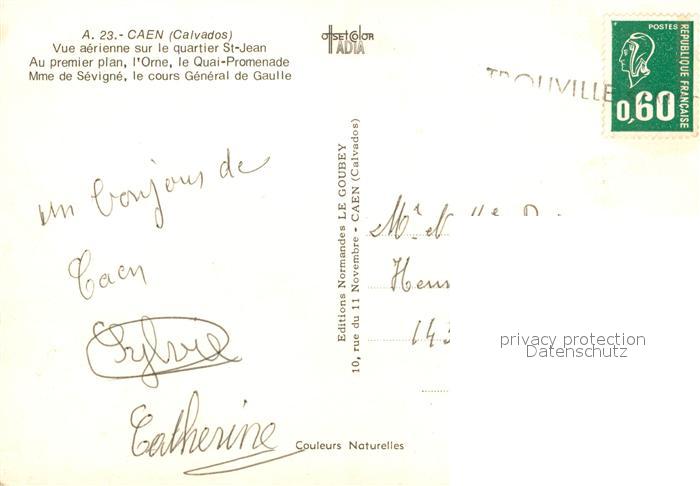 A. 23.- CAEN (Calvados)
Vue aérienne sur le quartier St-Jean
Au premier plan, l'Orne, le Quai-Promenade
Mme de Sévigné, le cours Général de Gaulle
OFFSET COLOR
IADIA
POSTES
RÉPUBLIQUE FRANÇAISE
0,60
TROUVILLE
un bonjour de
Caen
Sylvie
Catherine
Editions Normandes LE GOUBEY
10, rue du 11 Novembre - CAEN (Calvados)
privacy protection
Datenschutz
Couleurs Naturelles